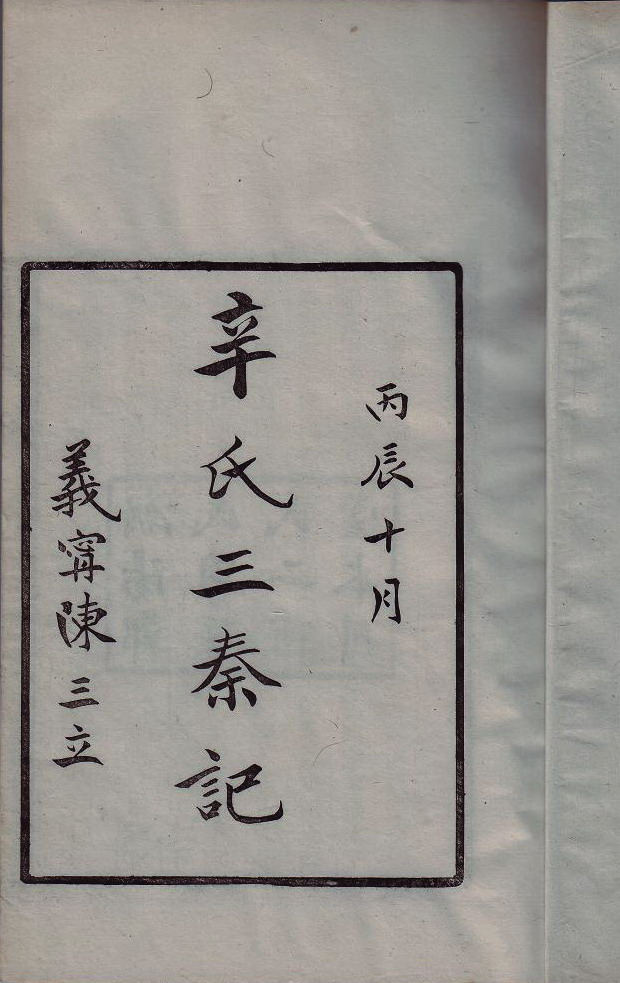 丙辰十月
辛氏三秦記
義甯陳三立